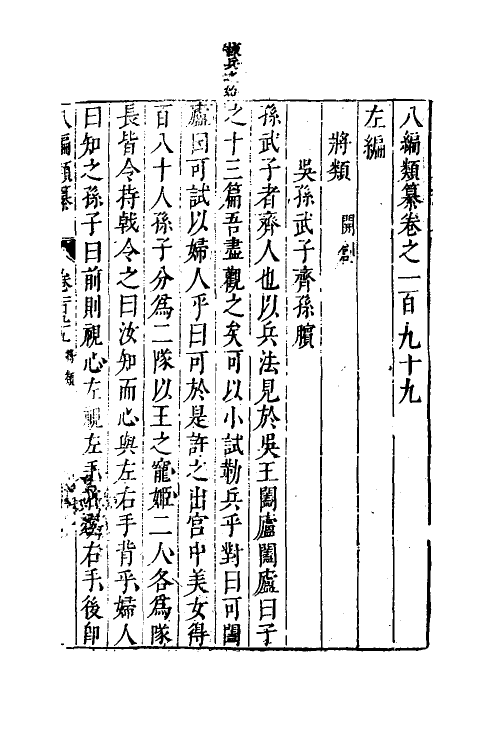 八編類纂卷之一百九十九
左編
將類 開創
吳孫武子齊孫臏
孫武子者齊人也以兵法見於吳王闔廬闔廬曰子
之十三篇吾盡觀之矣可以小試勒兵乎對曰可闔
廬曰可試以婦人乎曰可於是許之出宮中美女得
百八十人孫子分爲二隊以王之寵姬二人各爲隊
長皆令持戟令之曰汝知而心與左右手背乎婦人
曰知之孫子曰前則視心左視左手右視右手後卽
八編類纂 卷一百九十九 將類